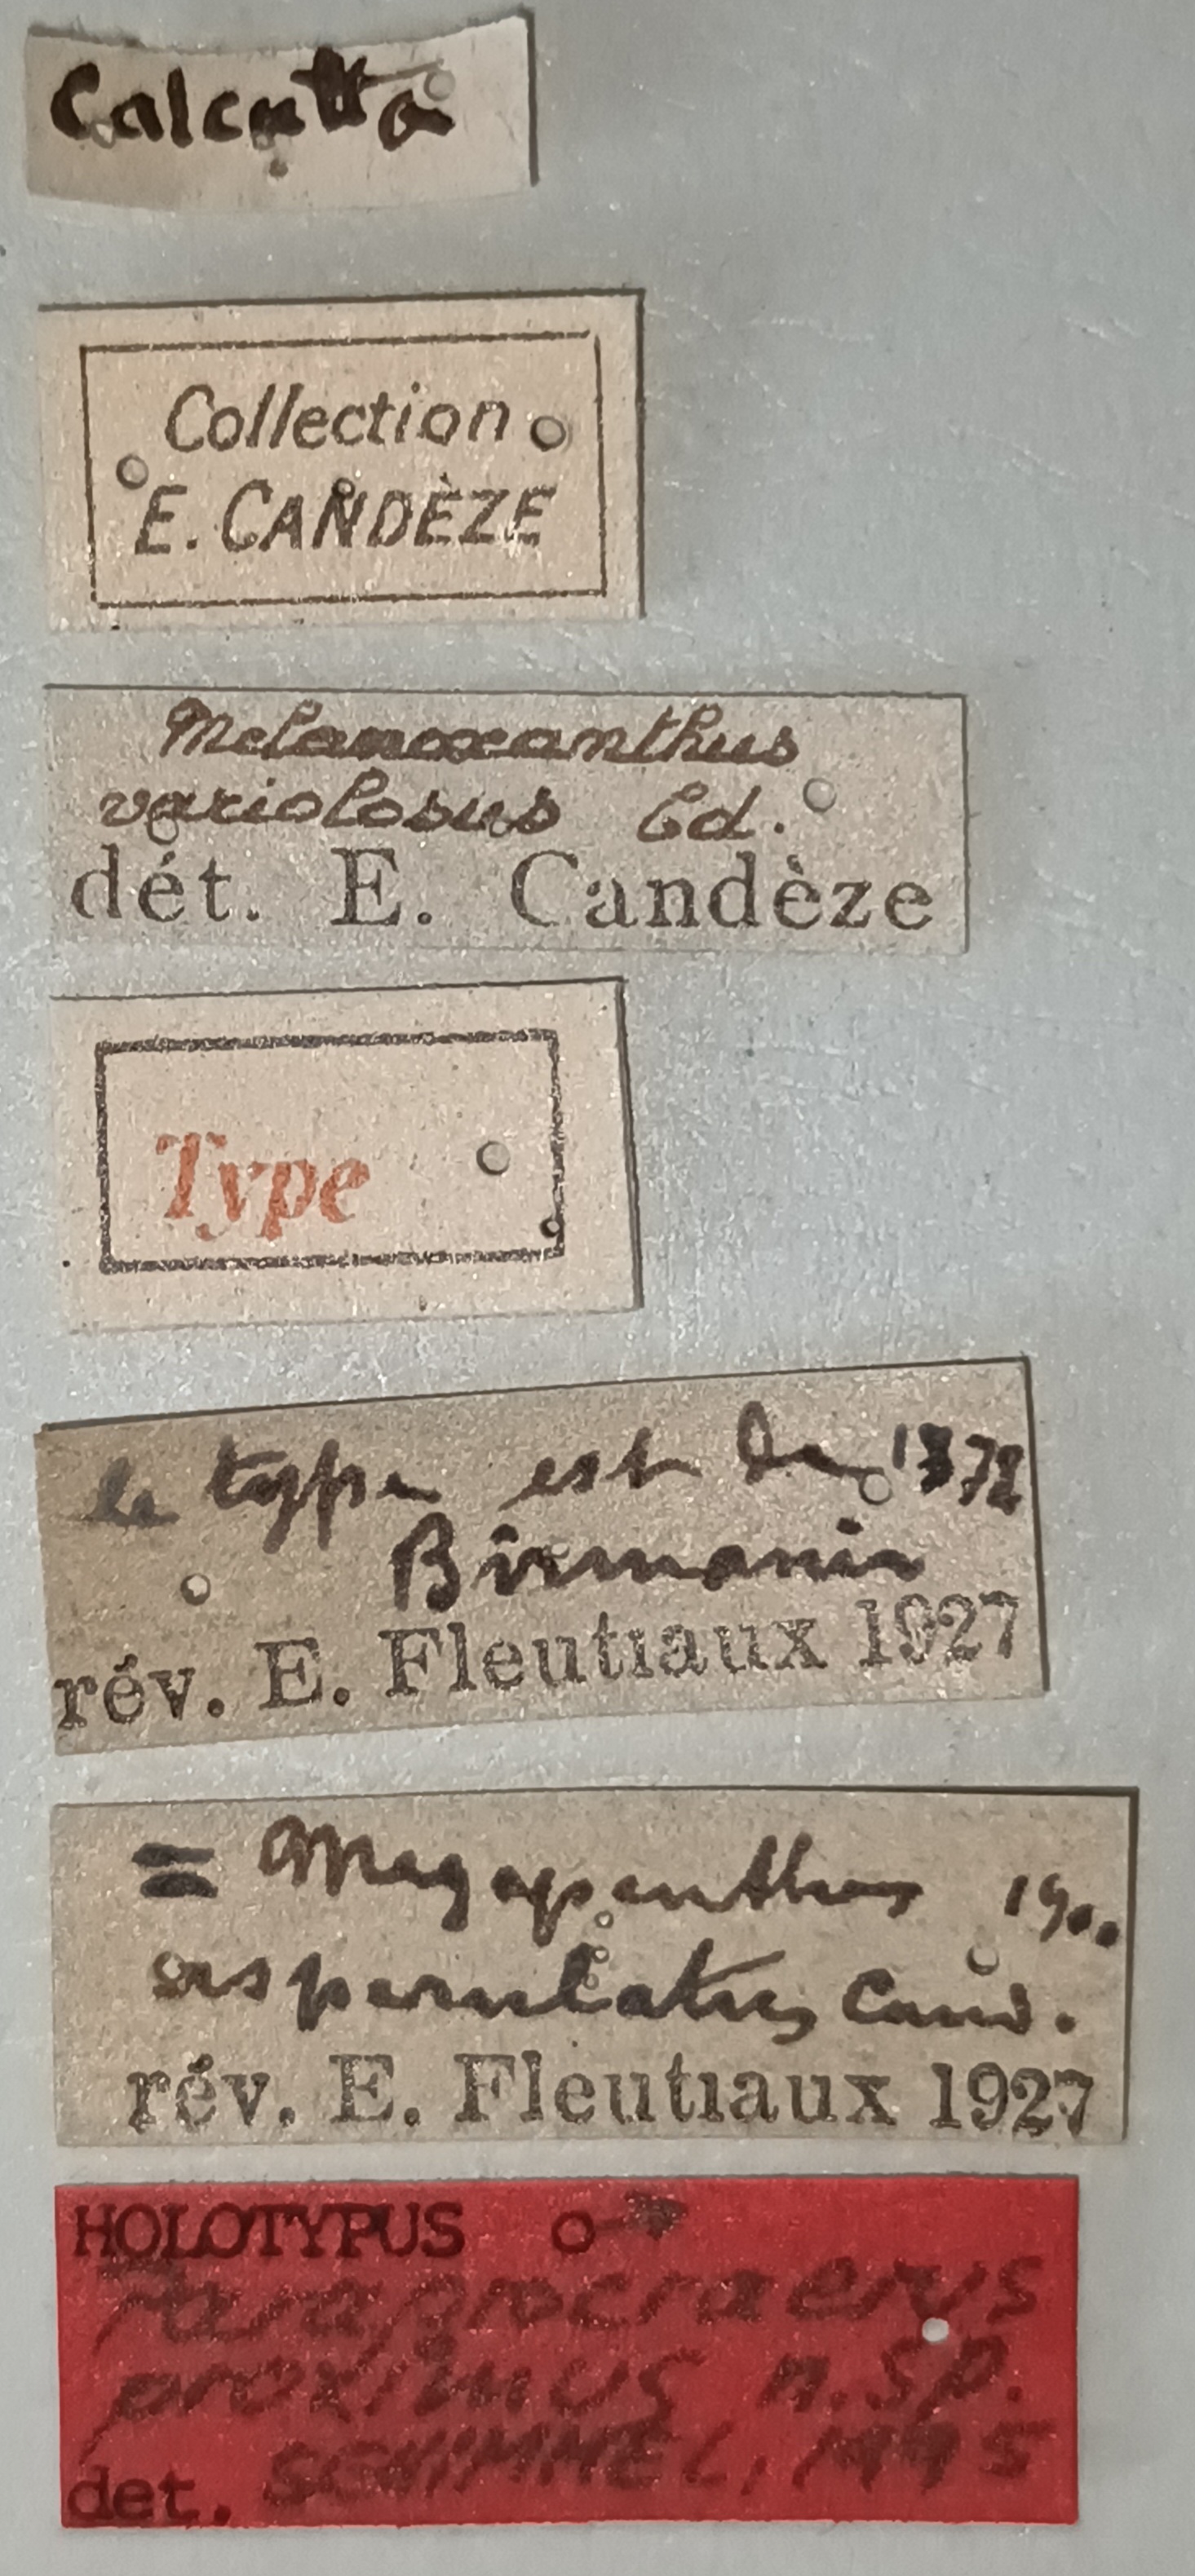 Calcutta
Collection
E. CANDÈZE
Melanoxanthus
variolosus Cd.
dét. E. Candèze
Type
le type est de
Birmanie
rév. E. Fleutiaux 1927
= Megapenthes
asperulatus Cand.
rév. E. Fleutiaux 1927
HOLOTYPUS ♂
proximus n.sp.
det. SCHIMMEL, 1995